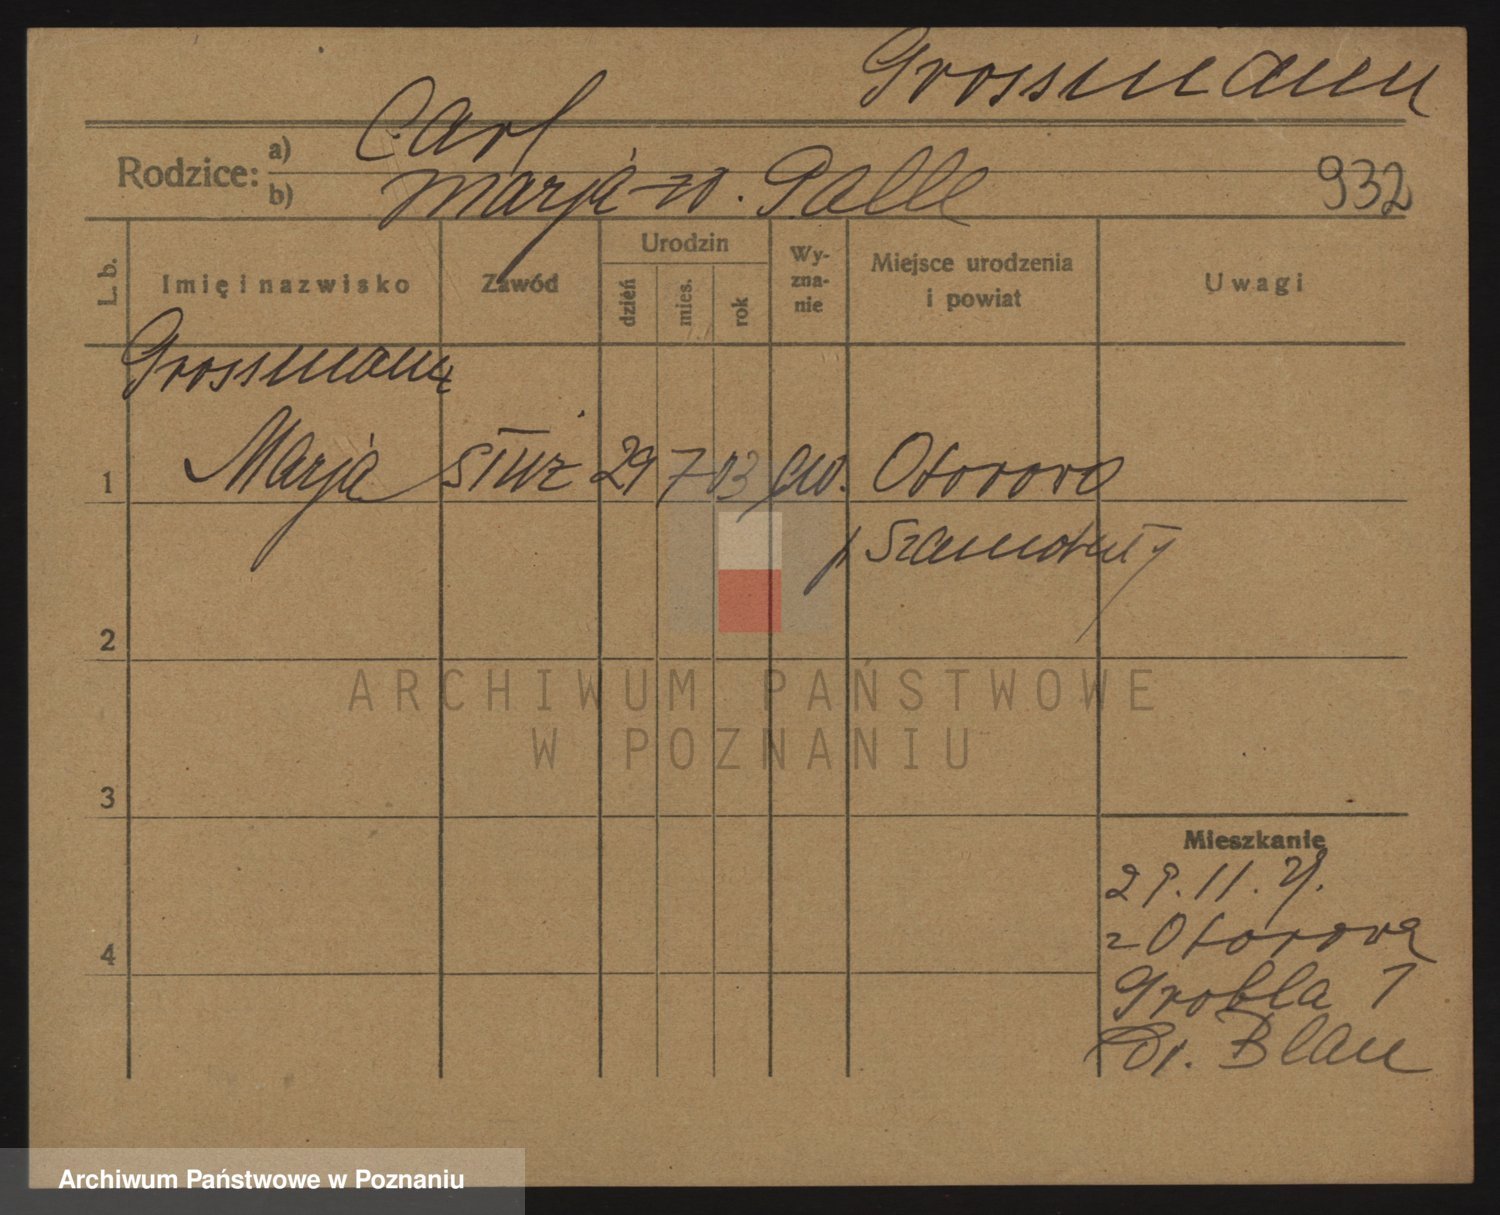 Grossmann
Rodzice: a) Carl
b) Marja z d. Palle
932
L. b. Imię i nazwisko Zawód Urodzin dzień mies. rok Wyznanie Miejsce urodzenia i powiat Uwagi
Grossmann
1 Marja służ 29 7 03 ew. Otorowo
p Szamotuły
2
ARCHIWUM PAŃSTWOWE
W POZNANIU
3
Mieszkanie
29.11.
z Otorowa
4
Grobla 1
Dr. Blau
Archiwum Państwowe w Poznaniu